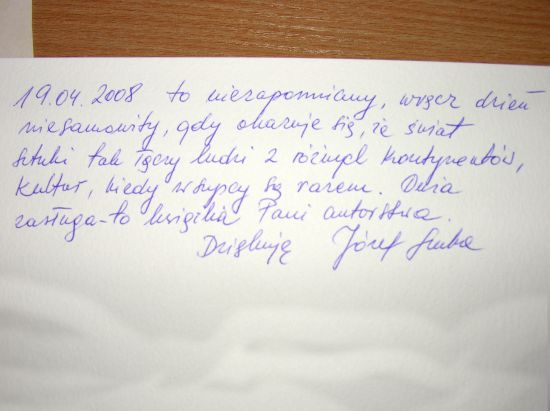 19.04.2008 to niezapomniany, wręcz dzień
niesamowity, gdy okazuje się, że świat
sztuki tak łączy ludzi z różnych kontynentów,
kultur, kiedy wszyscy są razem. Duża
zasługa-to książka Pani autorstwa.
Dziękuję Józef